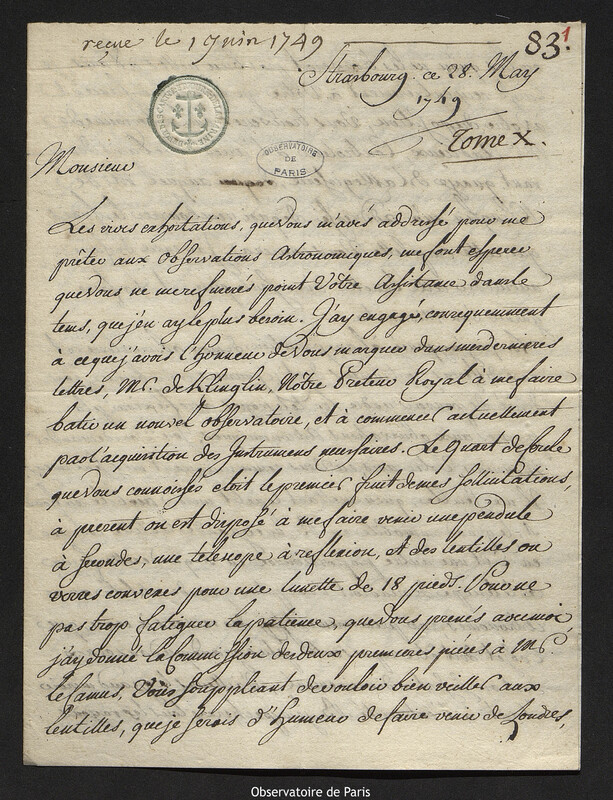 reçue le 1 Juin 1749
83.1
Strasbourg. ce 28. May
1749
Tome X.
OBSERVATOIRE
DE
PARIS
Monsieur
Les vives exhortations, que vous m'avés addressé pour me
prêter aux Observations Astronomiques, me font esperer
que vous ne me refuserés point Votre Assistance dans le
tems, que j'en ay le plus besoin. J'ay engagé, consequemment
à ce que j'avois l'honneur de Vous marquer dans mes dernieres
lettres, Mr. de Klinglin, Nôtre Preteur Royal à me faire
batir un nouvel observatoire, et à commencer actuellement
par l'acquisition des Instrumens necessaires. Le Quart de cercle
que vous connoissés etoit le premier fruit de mes sollicitations,
à present on est disposé à me faire venir une pendule
à secondes, une telescope à reflexion, et des lentilles ou
verres convexes pour une lunette de 18 pieds. Pour ne
pas trop fatiguer la patience, que vous prenés avec moi
j'ay donné la Commission des deux premieres pièces à Mr.
le Camus, Vous supplicant de vouloir bien veiller aux
lentilles, que je serois d'humeur de faire venir de Londres,
Observatoire de Paris